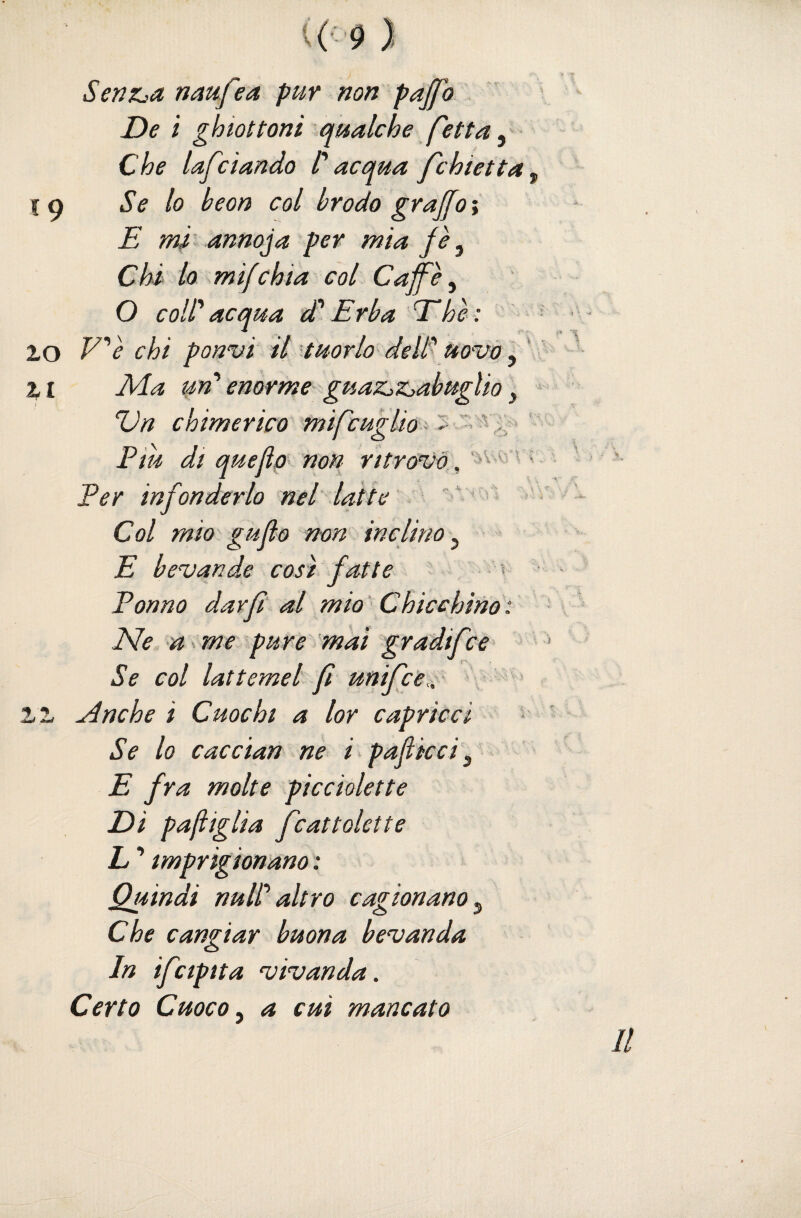 ( 9 )
Senza nauſea pur non paſſo
De i ghiottoni qualche ſetta,
Che laſciando l'acqua ſchietta,
19 Se lo beon col brodo graſſo;
E mi annoja per mia fè,
Chi lo miſchia col Caffè,
O coll'acqua d'Erba Thè:
20 V'è chi ponvi il tuorlo dell'uovo,
21 Ma un'enorme guazzabuglio,
Un chimerico miſcuglio
Più di queſto non ritrovò,
Per infonderlo nel latte
Col mio guſto non inclino,
E bevande così fatte
Ponno darſi al mio Chicchino:
Ne a me pure mai gradiſce
Se col lattemel ſi uniſce.
22 Anche i Cuochi a lor capricci
Se lo caccian ne i paſticci,
E fra molte picciolette
Di paſtiglia ſcattolette
L'imprigionano:
Quindi null'altro cagionano,
Che cangiar buona bevanda
In iſcipita vivanda.
Certo Cuoco, a cui mancato
Il